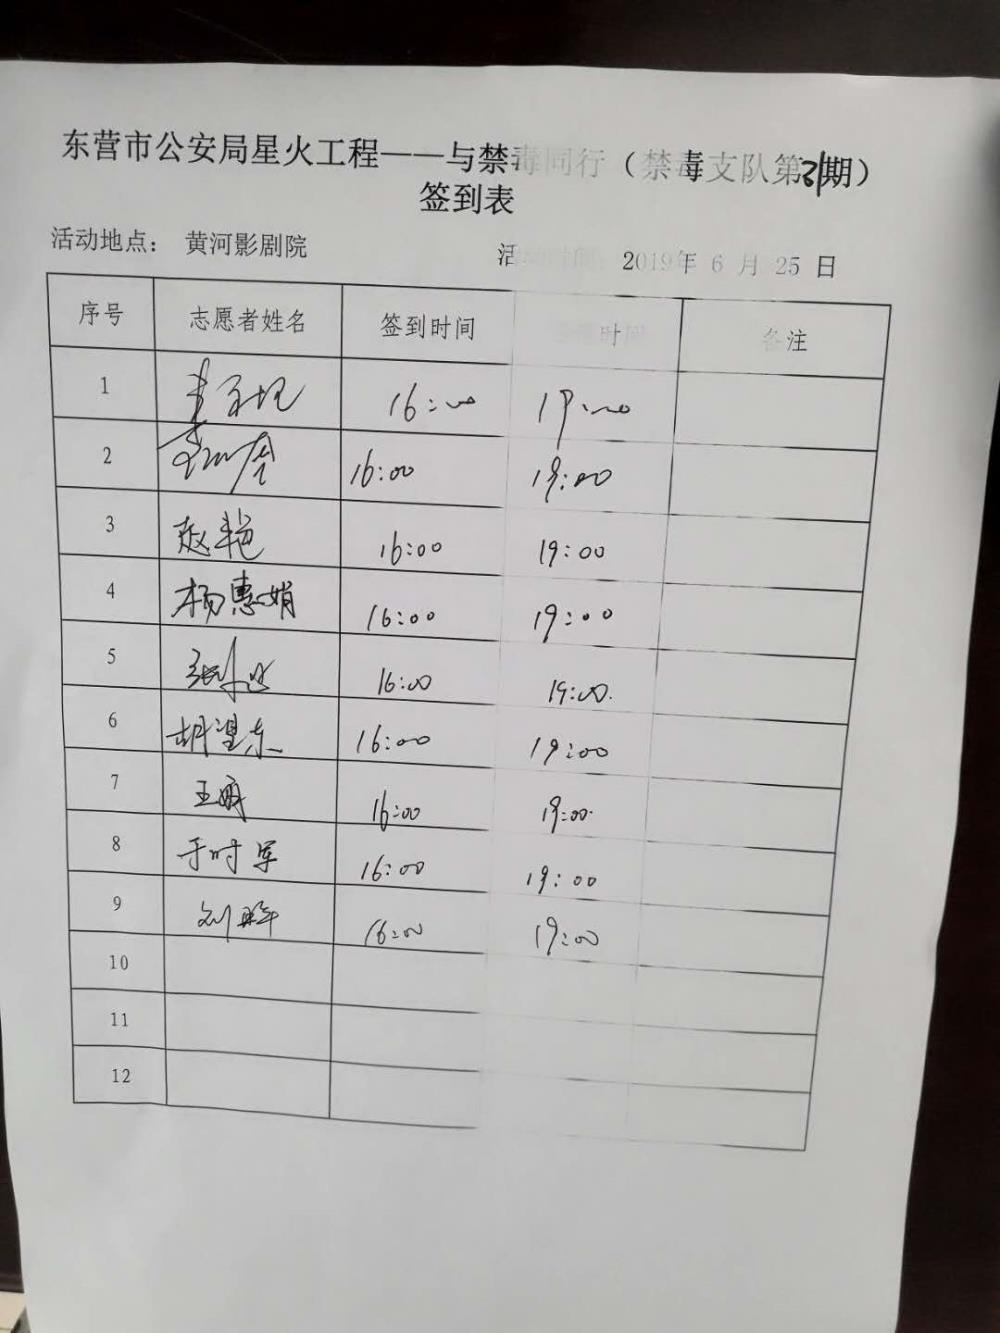 东营市公安局星火工程——与禁毒同行（禁毒支队第31期）
签到表
活动地点： 黄河影剧院 活动时间： 2019年 6 月 25 日
序号 志愿者姓名 签到时间 时间 备注
1 16:00 19:00
2 16:00 19:00
3 赵艳 16:00 19:00
4 杨惠娟 16:00 19:00
5 16:00 19:00
6 胡 东 16:00 19:00
7 王 16:00 19:00
8 于时军 16:00 19:00
9 刘 16:00 19:00
10
11
12